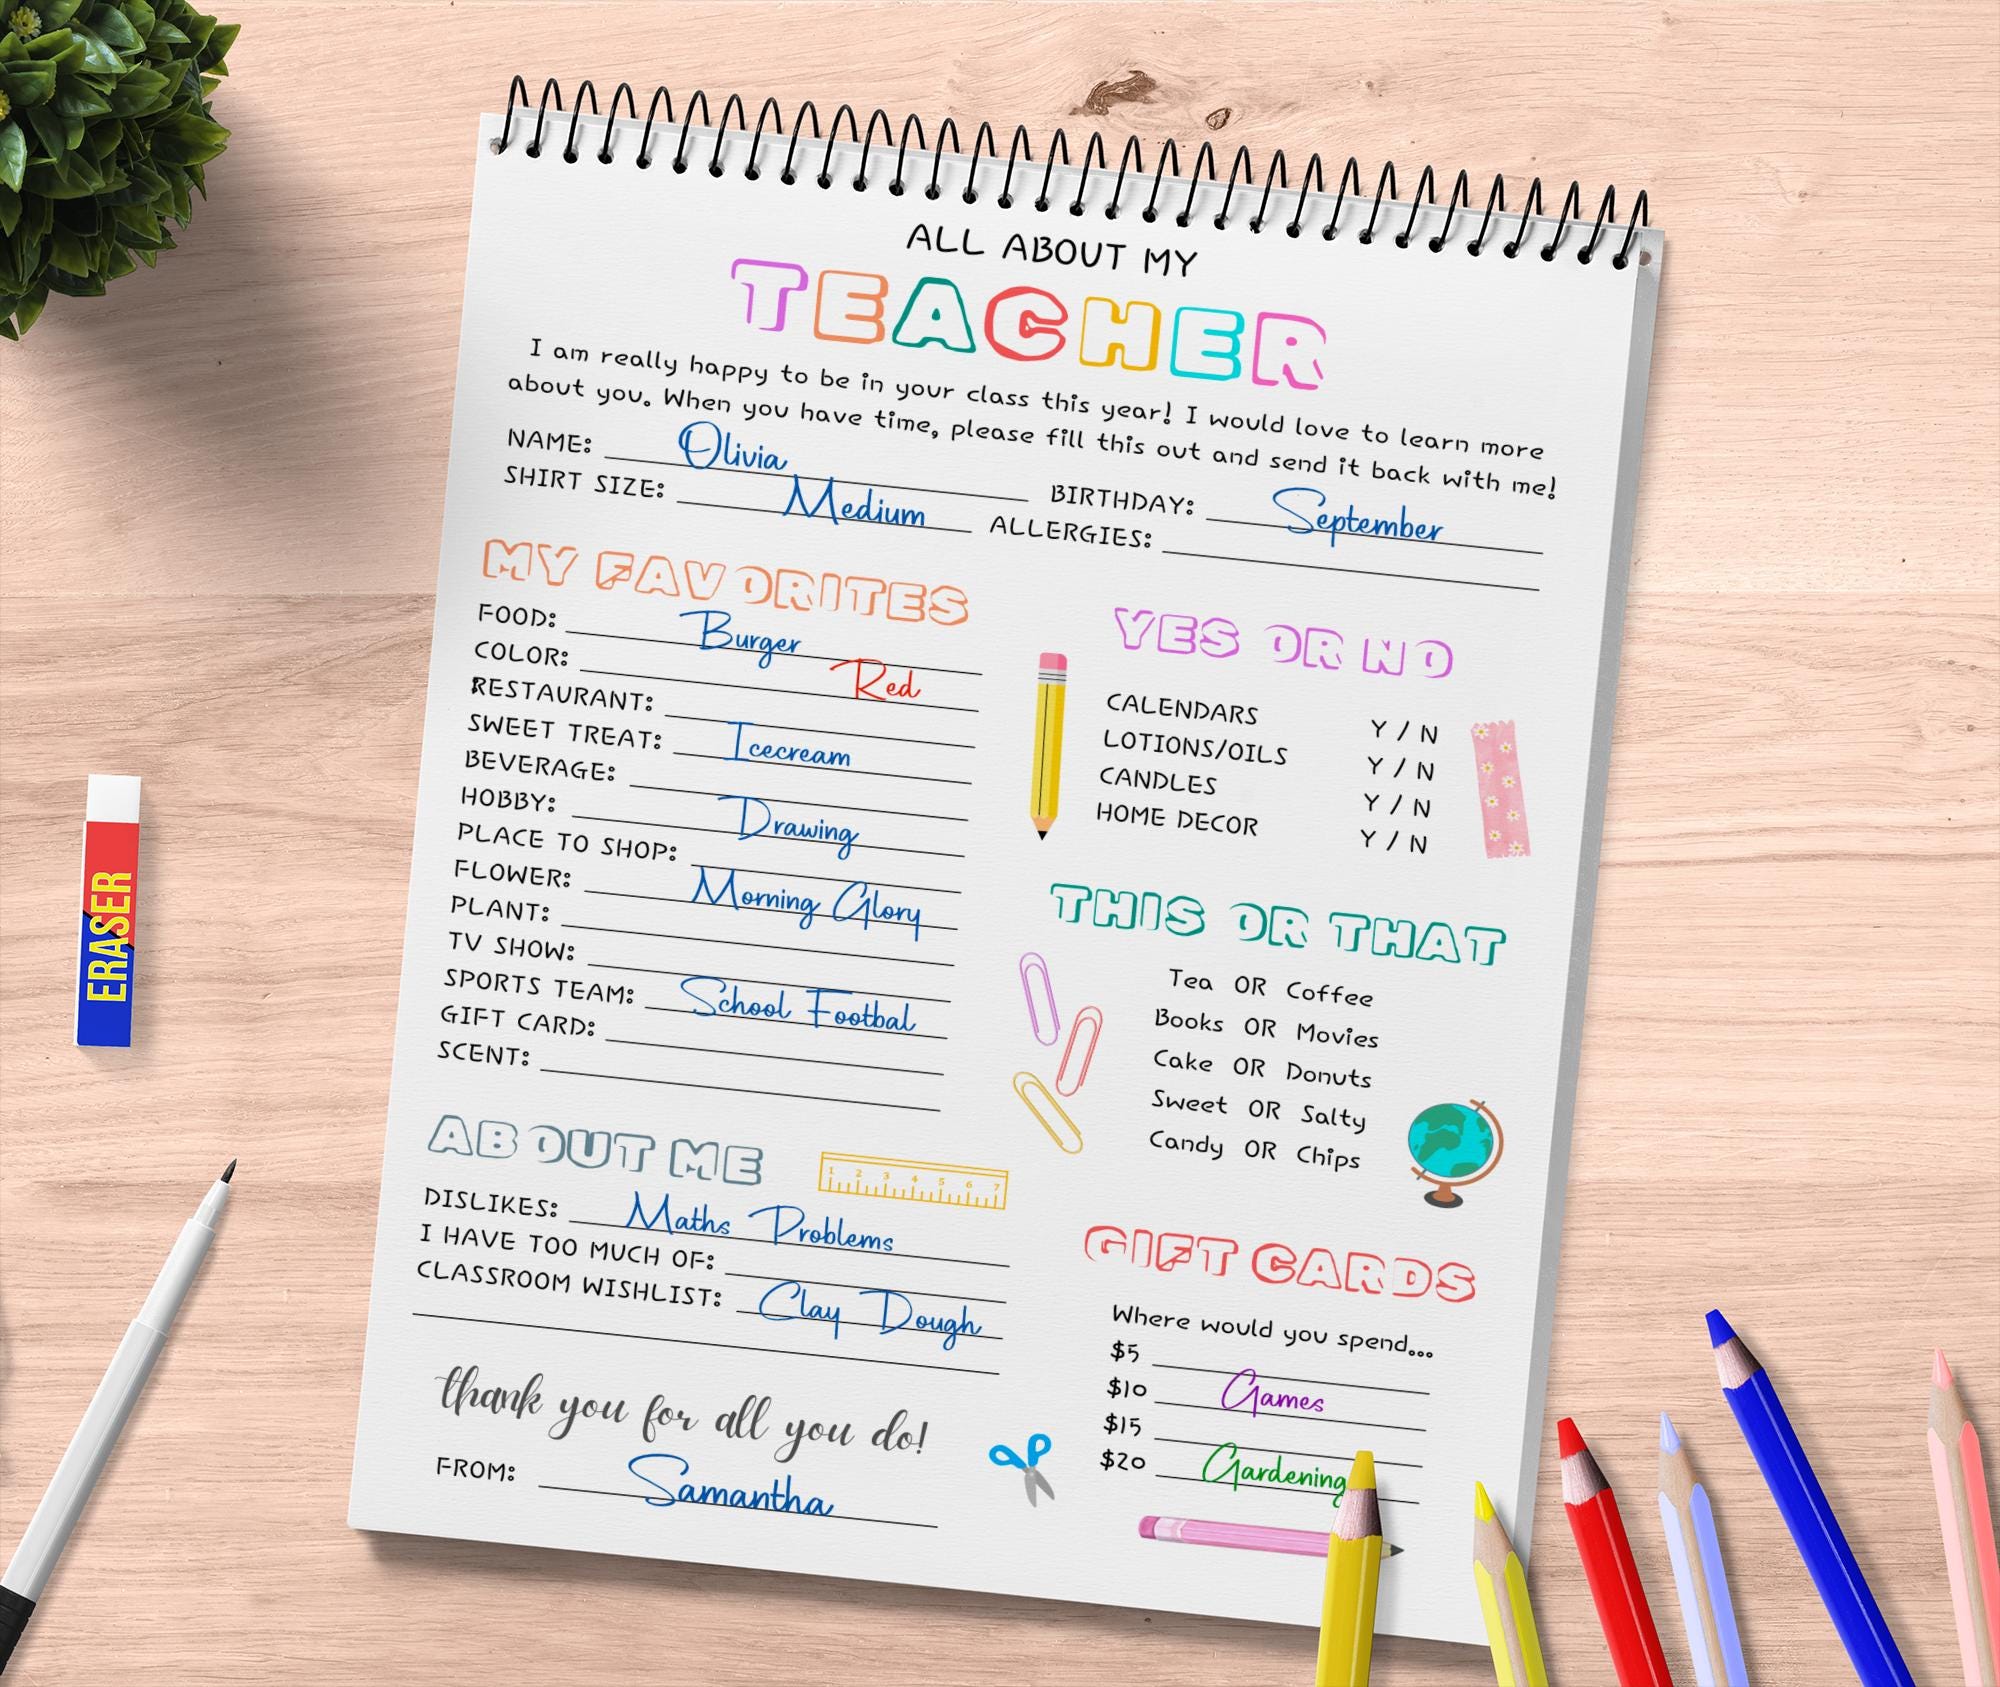 ALL ABOUT MY
TEACHER
I am really happy to be in your class this year! I would love to learn more
about you. When you have time, please fill this out and send it back with me!
NAME: Olivia BIRTHDAY: September
SHIRT SIZE: Medium ALLERGIES:
MY FAVORITES
FOOD: Burger
COLOR: Red
RESTAURANT:
SWEET TREAT: Icecream
BEVERAGE:
HOBBY: Drawing
PLACE TO SHOP:
FLOWER: Morning Glory
PLANT:
TV SHOW:
SPORTS TEAM: School Footbal
GIFT CARD:
SCENT:
ABOUT ME
1 2 3 4 5 6 7
DISLIKES: Maths Problems
I HAVE TOO MUCH OF:
CLASSROOM WISHLIST: Clay Dough
thank you for all you do!
FROM: Samantha
YES OR NO
CALENDARS Y / N
LOTIONS/OILS Y / N
CANDLES Y / N
HOME DECOR Y / N
THIS OR THAT
Tea OR Coffee
Books OR Movies
Cake OR Donuts
Sweet OR Salty
Candy OR Chips
GIFT CARDS
Where would you spend...
$5
$10 Games
$15
$20 Gardening
ERASER